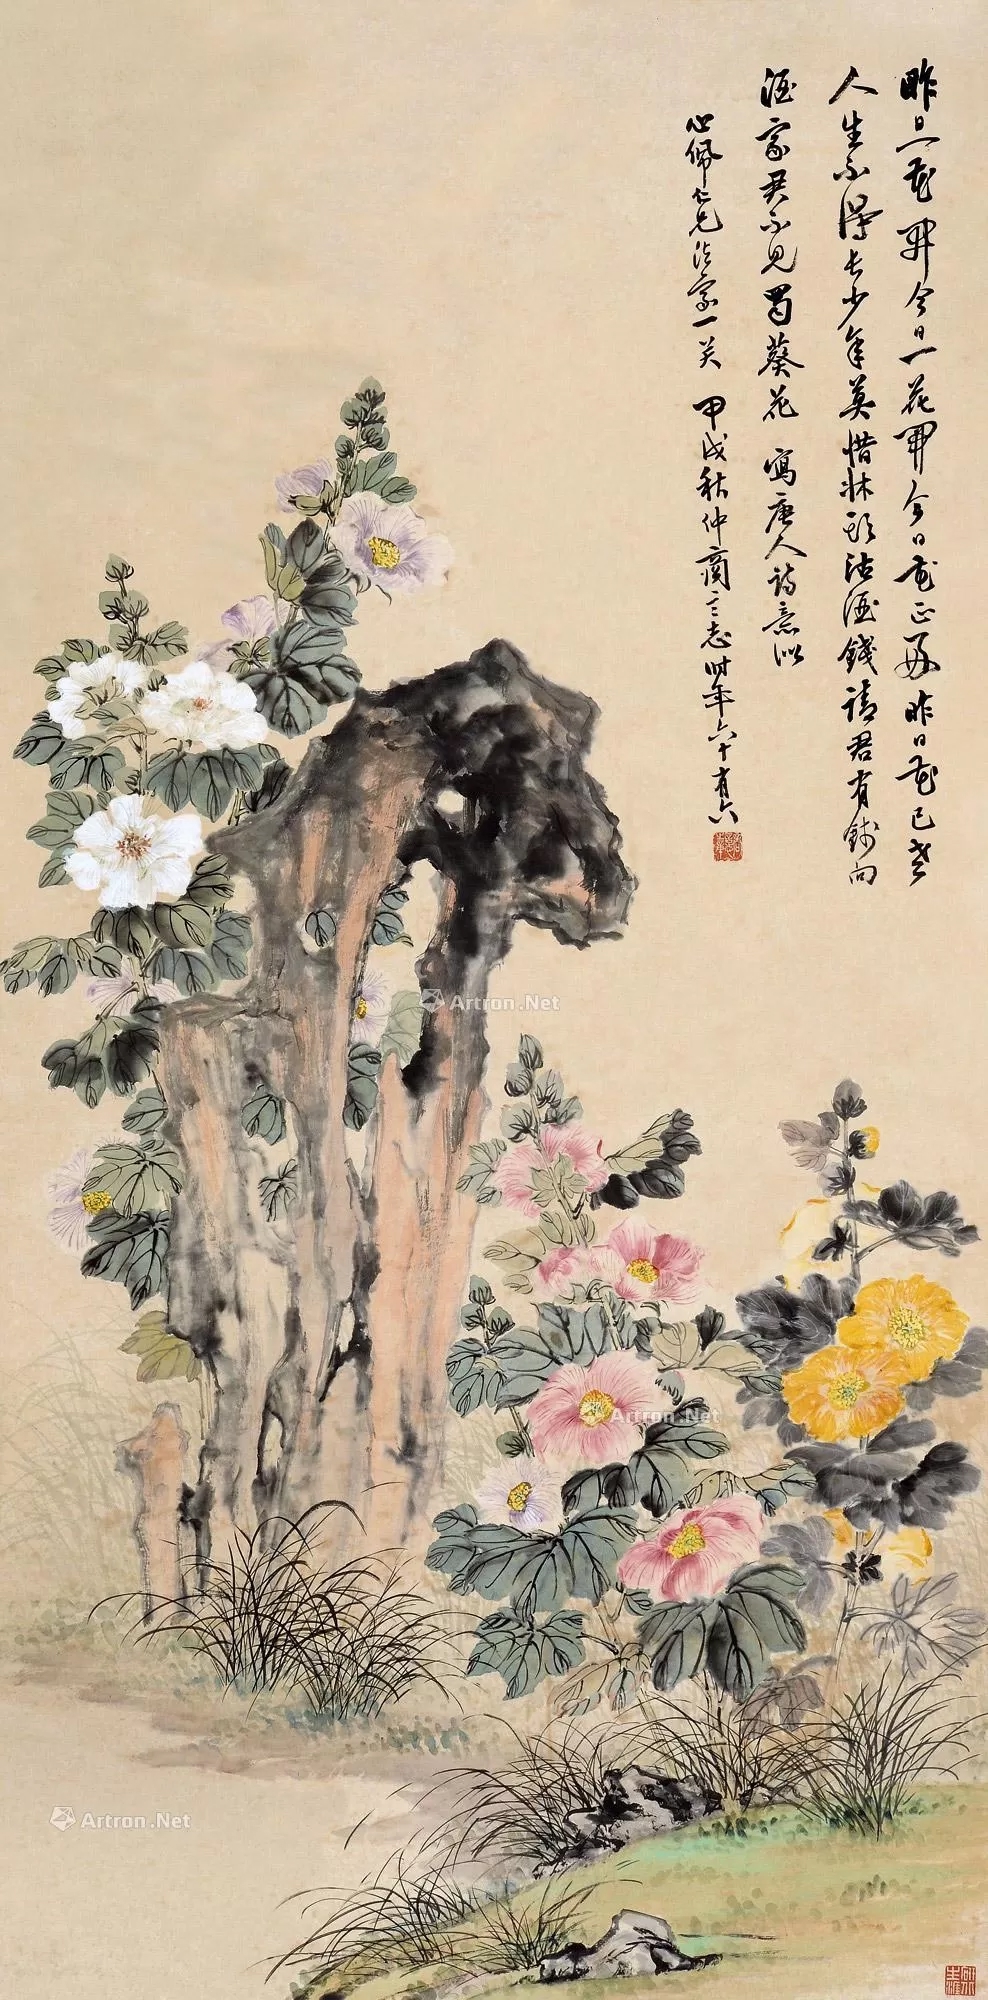 昨日一花開今日一花開今日花正好昨日花已老
人生不得長少年莫惜牀頭沽酒錢請君有錢向
酒家君不見蜀葵花 寫唐人詩意似
心佩仁兄法家一笑 甲戌秋仲商言志時年六十有六
Artron.Net
Artron.Net
Artron.Net